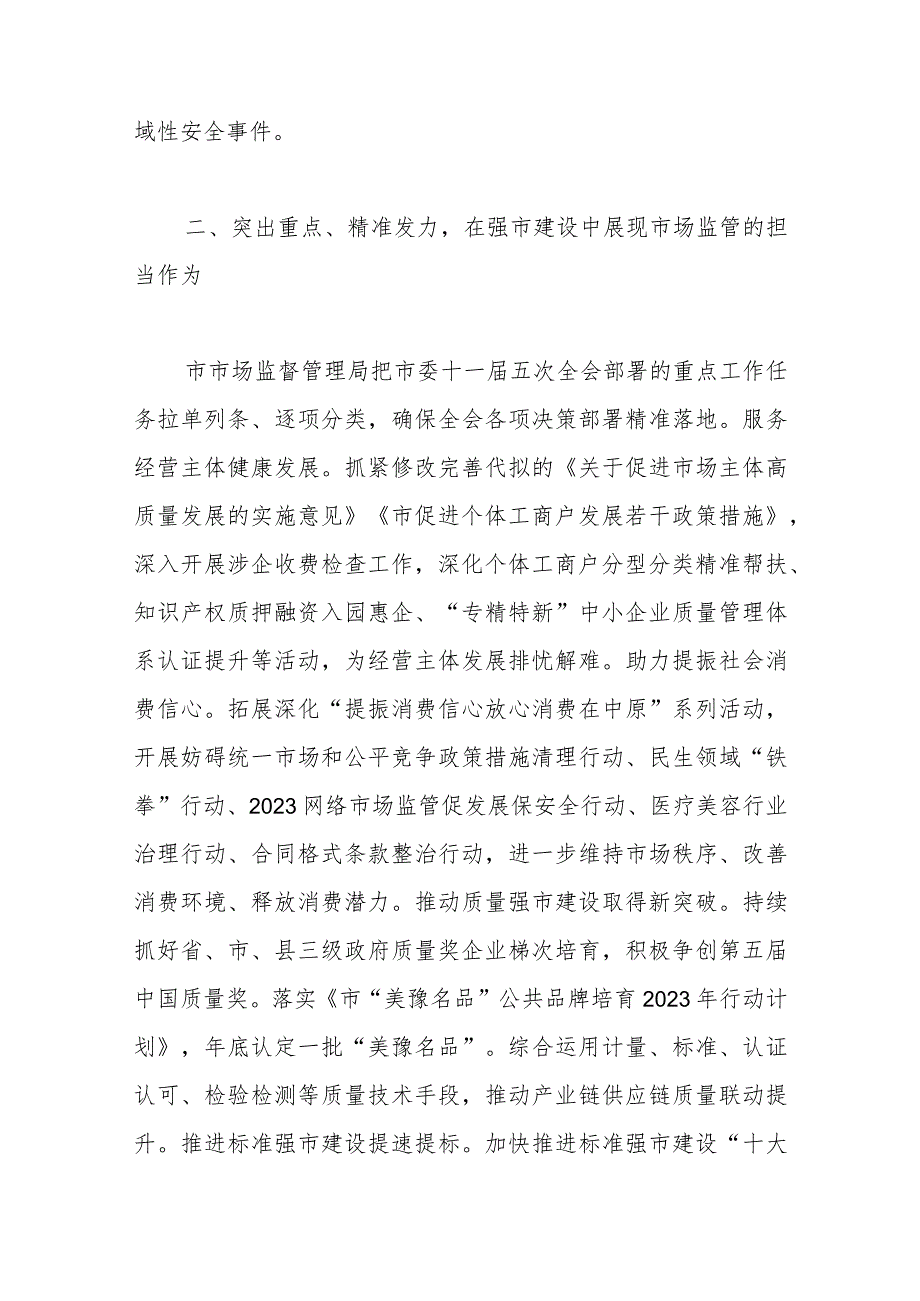 域性安全事件。
二、突出重点、精准发力，在强市建设中展现市场监管的担
当作为
市市场监督管理局把市委十一届五次全会部署的重点工作任
务拉单列条、逐项分类，确保全会各项决策部署精准落地。服务
经营主体健康发展。抓紧修改完善代拟的《关于促进市场主体高
质量发展的实施意见》《市促进个体工商户发展若干政策措施》，
深入开展涉企收费检查工作，深化个体工商户分型分类精准帮扶、
知识产权质押融资入园惠企、“专精特新”中小企业质量管理体
系认证提升等活动，为经营主体发展排忧解难。助力提振社会消
费信心。拓展深化“提振消费信心放心消费在中原”系列活动，
开展妨碍统一市场和公平竞争政策措施清理行动、民生领域“铁
拳”行动、2023网络市场监管促发展保安全行动、医疗美容行业
治理行动、合同格式条款整治行动，进一步维持市场秩序、改善
消费环境、释放消费潜力。推动质量强市建设取得新突破。持续
抓好省、市、县三级政府质量奖企业梯次培育，积极争创第五届
中国质量奖。落实《市“美豫名品”公共品牌培育2023年行动计
划》，年底认定一批“美豫名品”。综合运用计量、标准、认证
认可、检验检测等质量技术手段，推动产业链供应链质量联动提
升。推进标准强市建设提速提标。加快推进标准强市建设“十大